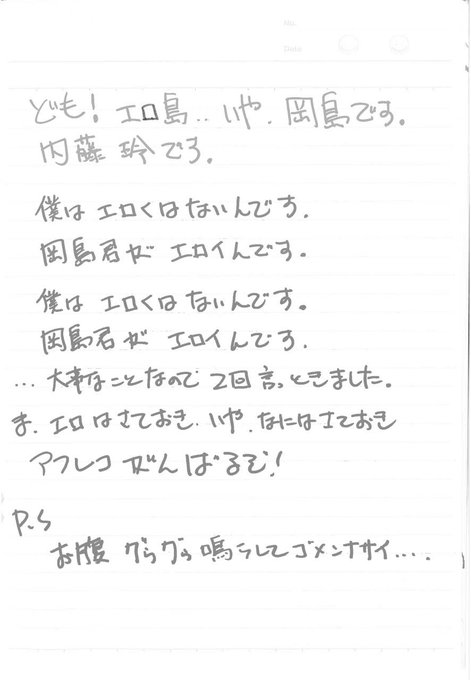 No.
Date
ども! エロ島.. いや. 岡島です。
内藤 玲です。
僕は エロくはないんです.
岡島君が エロイんです。
僕は エロくはないんです。
岡島君が エロイんです.
... 大事なことなので 2回言っときました。
ま. エロはさておき. いや. なにはさておき
アフレコ がんばるぞ!
P.S
お腹 グゥグゥ 鳴らして ゴメンナサイ....